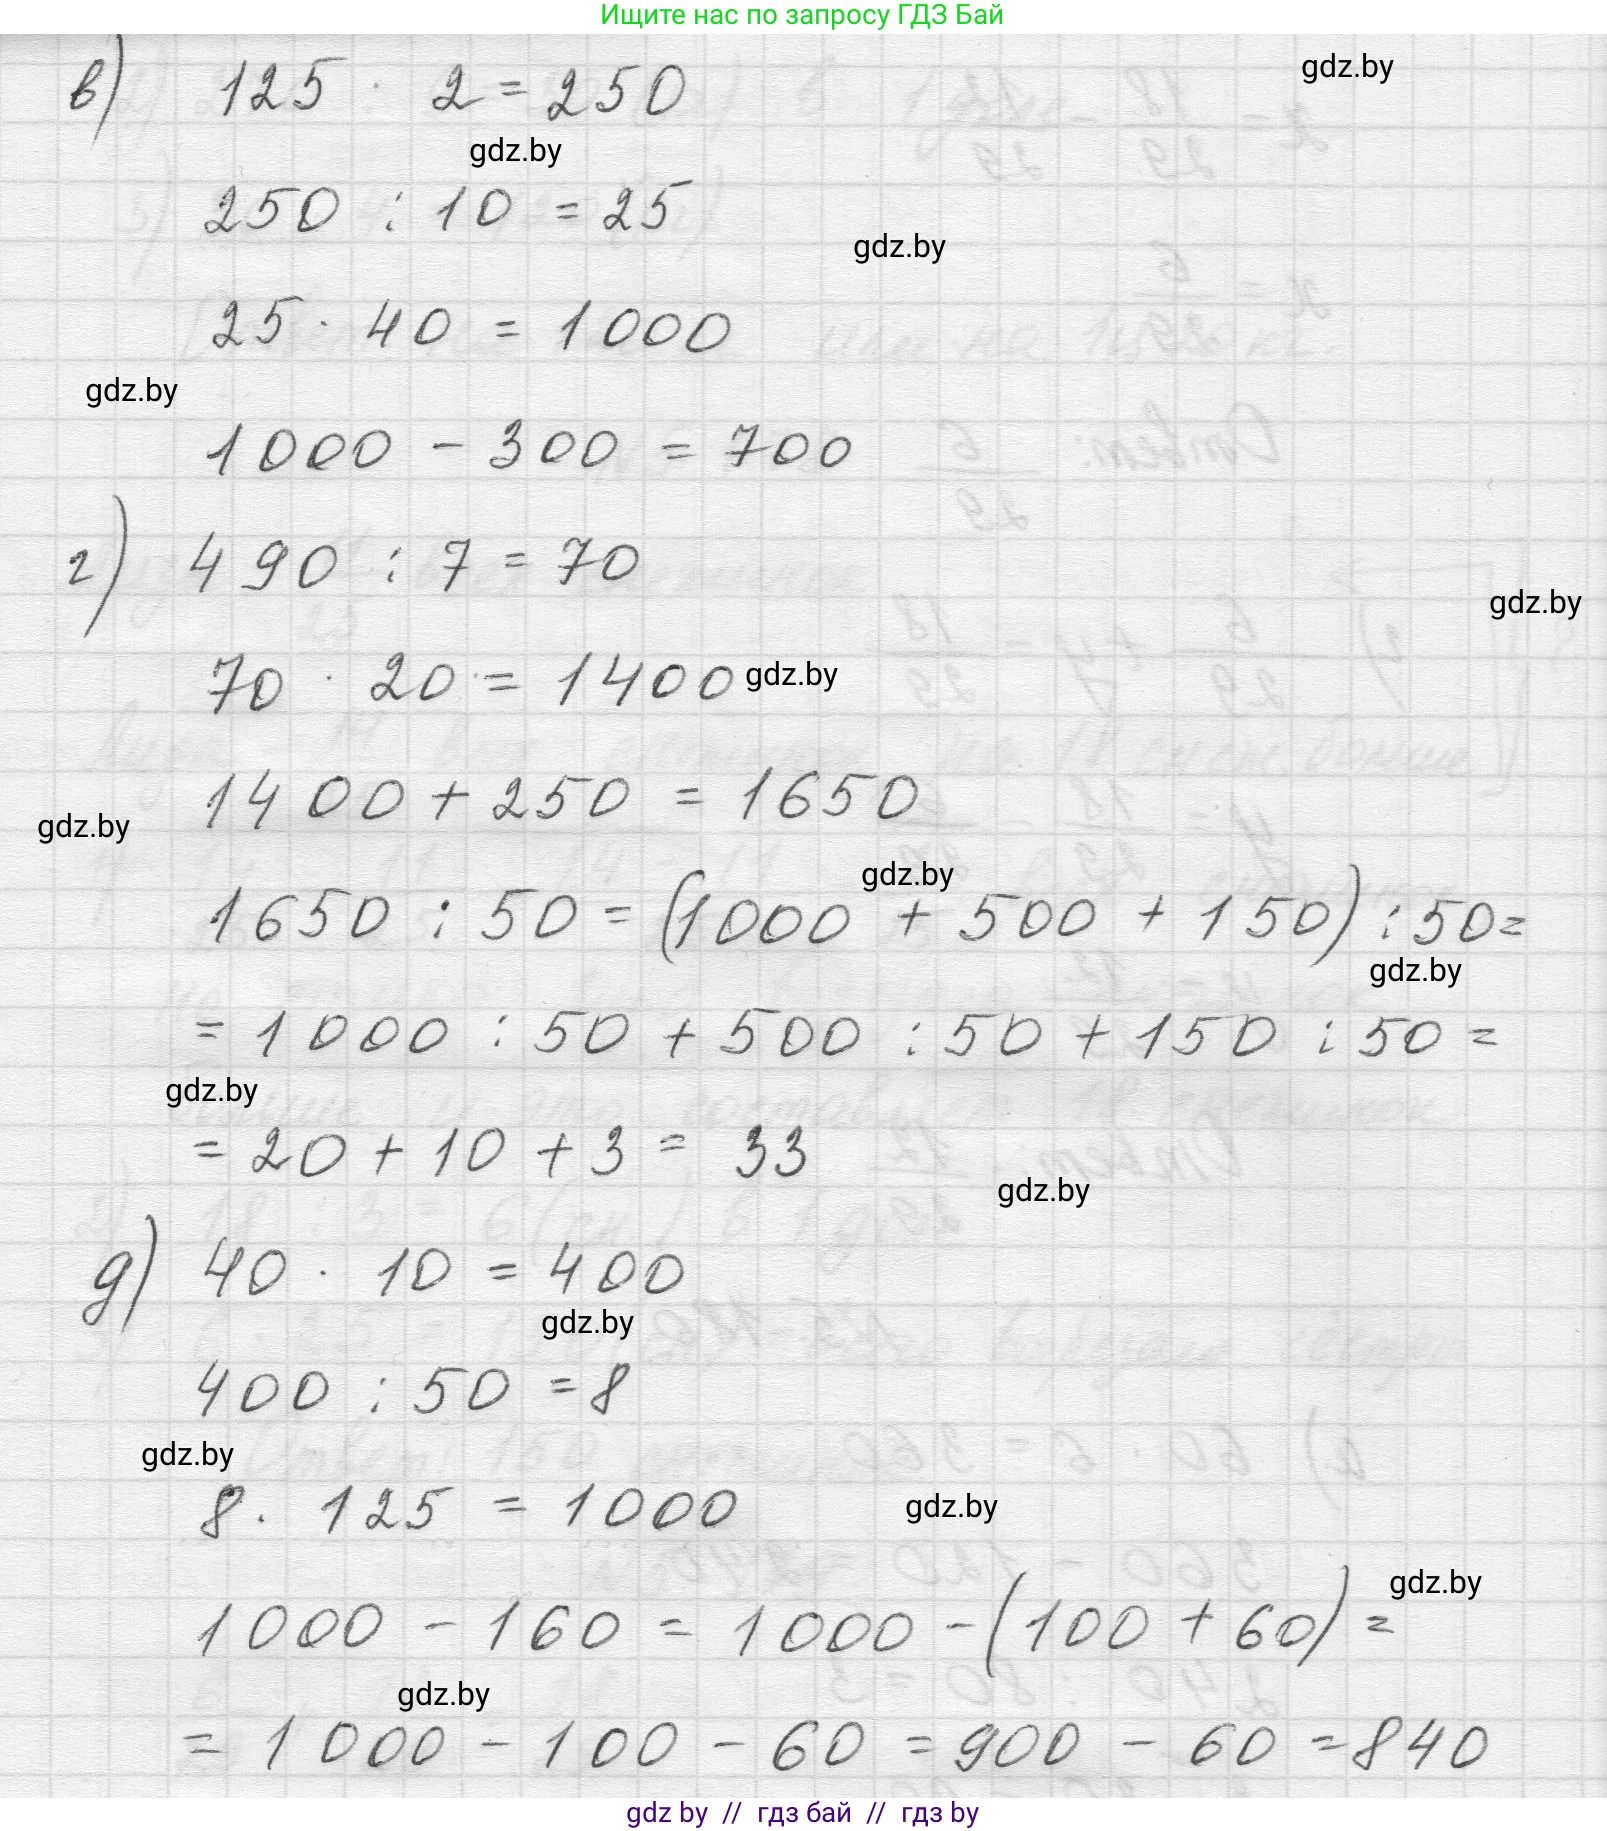 Ищите нас по запросу ГДЗ Бай
gdz.by
в) 125 · 2 = 250
gdz.by
250 : 10 = 25
gdz.by
25 · 40 = 1000
gdz.by
1000 - 300 = 700
г) 490 : 7 = 70
gdz.by
70 · 20 = 1400
gdz.by
1400 + 250 = 1650
gdz.by
gdz.by
1650 : 50 = (1000 + 500 + 150) : 50 =
gdz.by
= 1000 : 50 + 500 : 50 + 150 : 50 =
gdz.by
= 20 + 10 + 3 = 33
gdz.by
д) 40 · 10 = 400
gdz.by
400 : 50 = 8
gdz.by
8 · 125 = 1000
gdz.by
gdz.by
1000 - 160 = 1000 - (100 + 60) =
gdz.by
= 1000 - 100 - 60 = 900 - 60 = 840
gdz by // гдз бай // гдз by